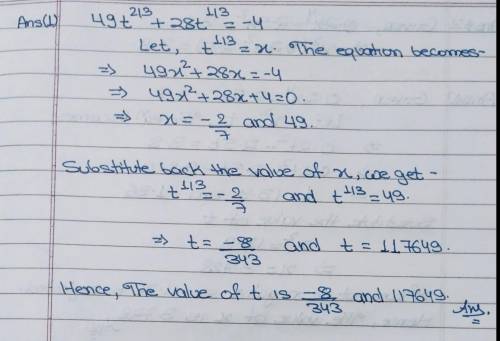 Ans(1) 49t^2/3 + 28t^1/3 = -4
Let, t^1/3 = x. The equation becomes-
⇒ 49x² + 28x = -4
⇒ 49x² + 28x + 4 = 0.
⇒ x = -2/7 and 49.
Substitute back the value of x, we get -
t^1/3 = -2/7 and t^1/3 = 49.
⇒ t = -8/343 and t = 117649.
Hence, The value of t is -8/343 and 117649. Ans.